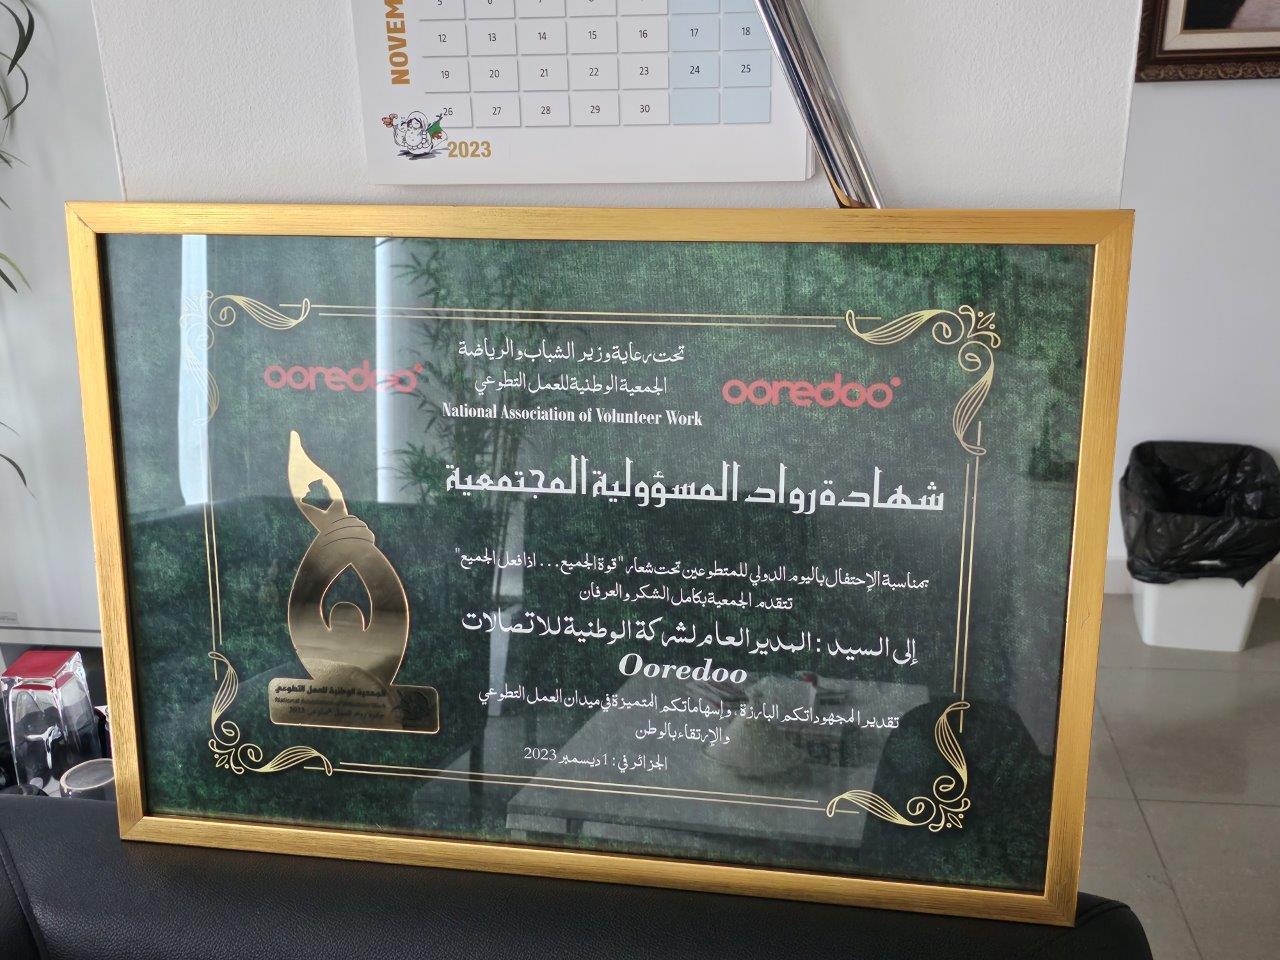 NOVEM
5 6 7 8 9
12 13 14 15 16 17 18
19 20 21 22 23 24 25
26 27 28 29 30
2023
تحت رعاية وزير الشباب والرياضة
ooredoo
الجمعية الوطنية للعمل التطوعي
ooredoo
National Association of Volunteer Work
شهادة رواد المسؤولية المجتمعية
بمناسبة الإحتفال باليوم الدولي للمتطوعين تحت شعار "قوة الجميع... اذا فعل الجميع"
تتقدم الجمعية بكامل الشكر والعرفان
إلى السيد : المدير العام لشركة الوطنية للاتصالات
Ooredoo
تقدير المجهوداتكم البارزة، وإسهاماتكم المتميزة في ميدان العمل التطوعي
والإرتقاء بالوطن
الجزائر في : 1 ديسمبر 2023
الجمعية الوطنية للعمل التطوعي
National Association of Volunteer Work
2023